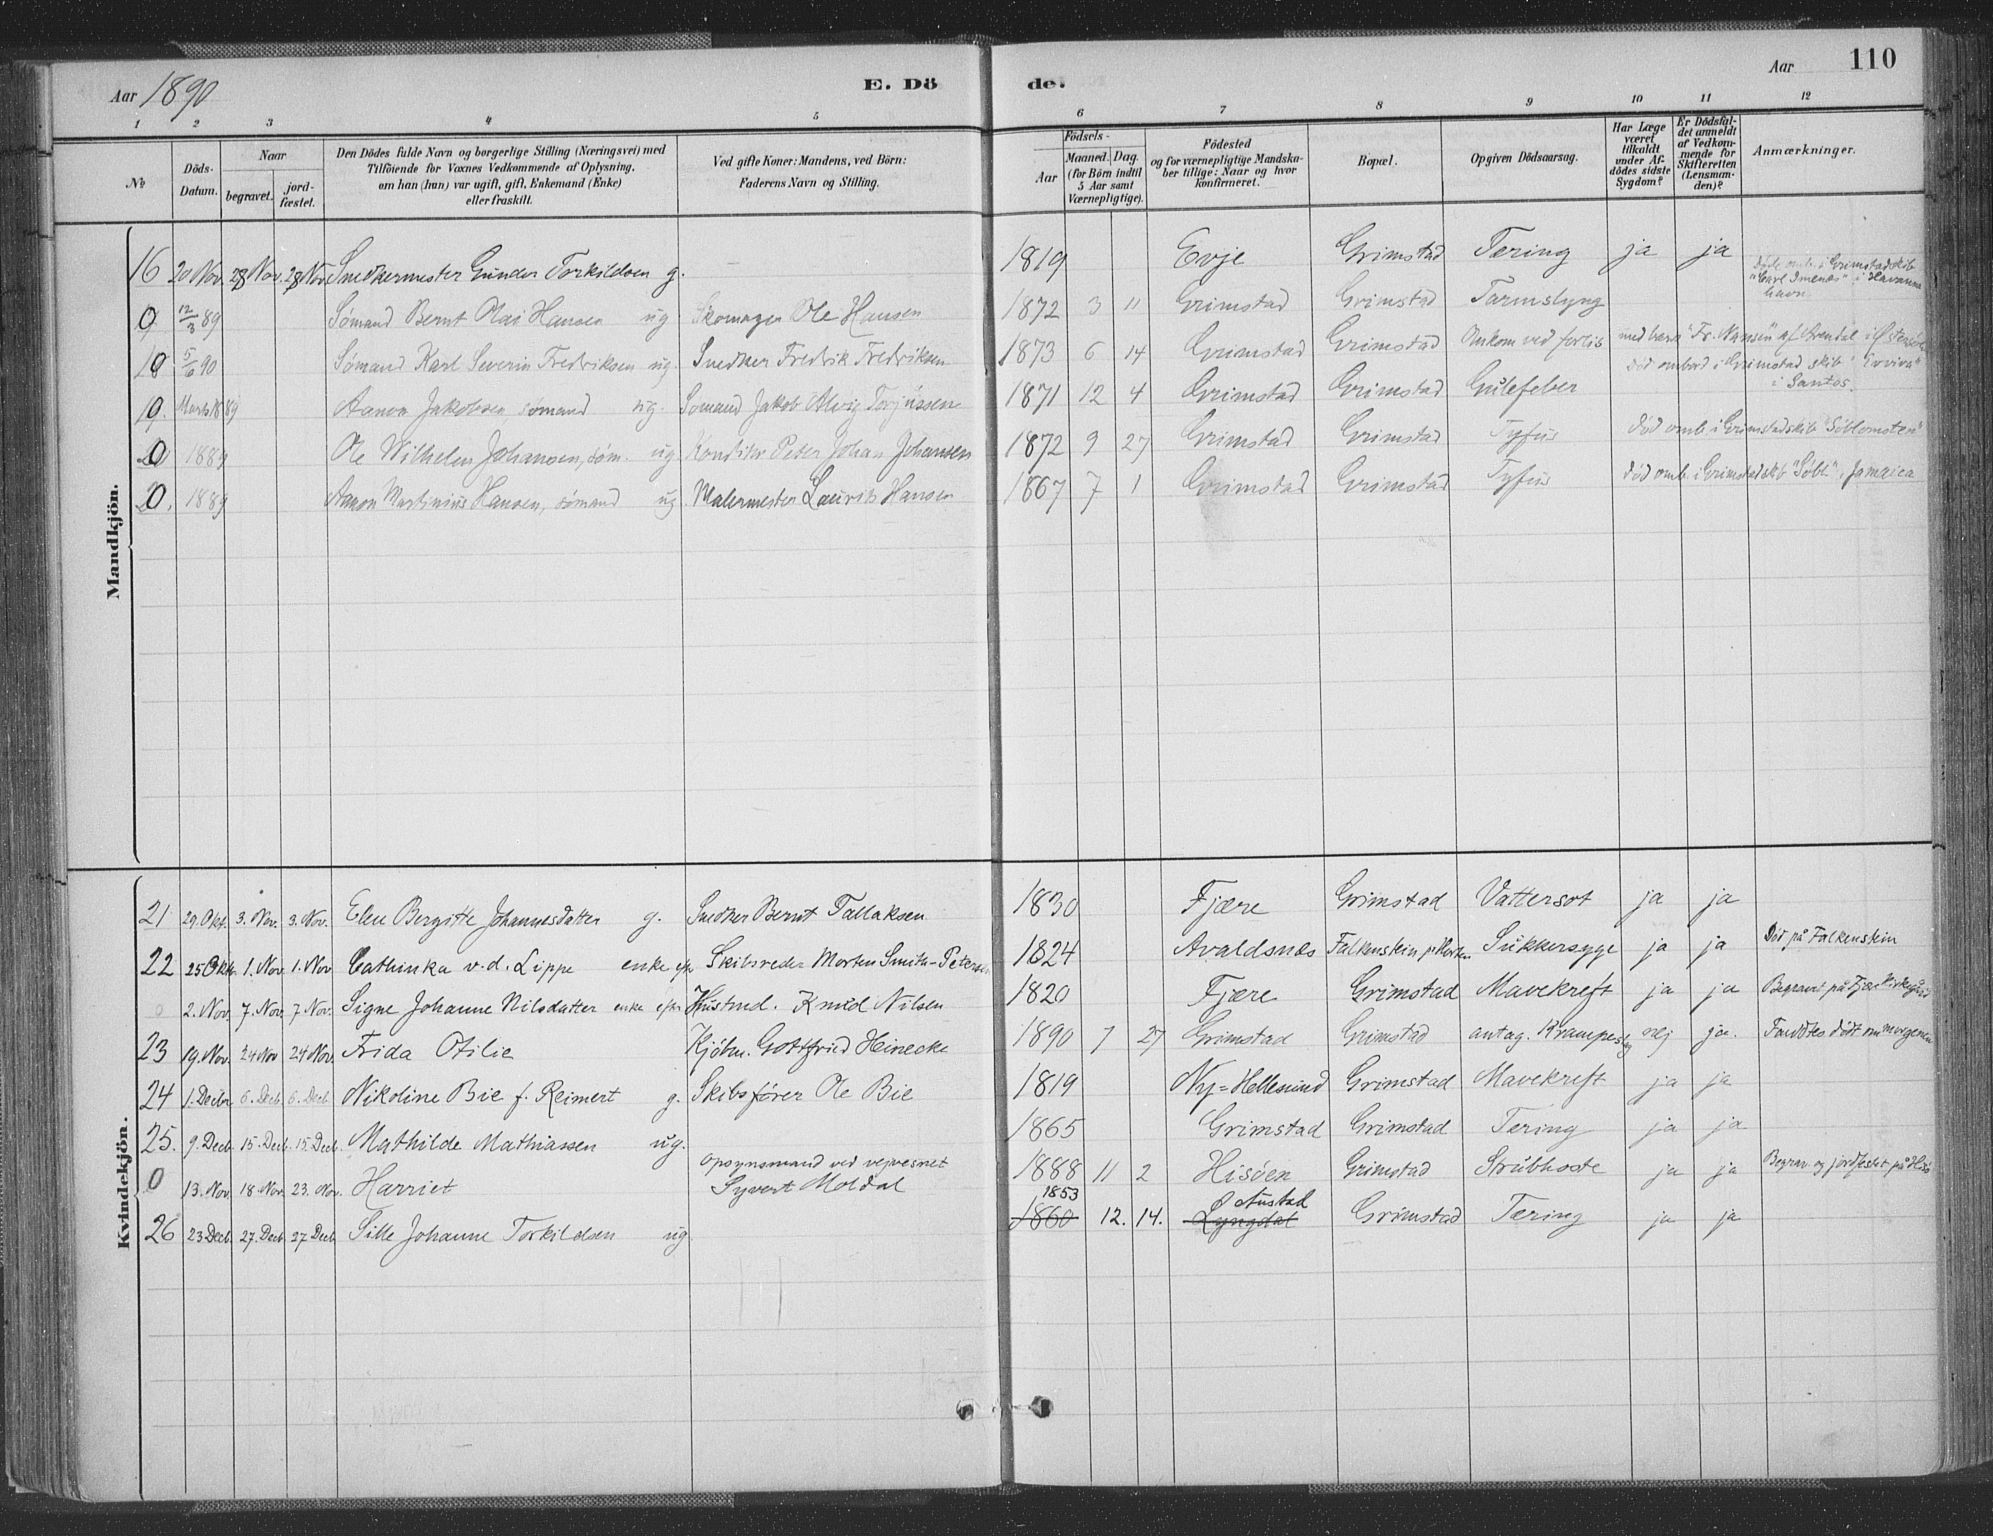 Aar 1890 E. Döde. Aar 110
1 2 3 4 5 6 7 8 9 10 11 12
№ Döds-Datum. Naar begravet. jordfæstet. Den Dödes fulde Navn og borgerlige Stilling (Næringsvei) med Tilföiende for Voxnes Vedkommende af Oplysning, om han (hun) var ugift, gift, Enkemand (Enke) eller fraskilt. Ved gifte Koner: Mandens, ved Börn: Faderens Navn og Stilling. Födsels- Aar Maaned. Dag. (for Börn indtil 5 Aar samt Værnepligtige). Födested og for værnepligtige Mandskaber tillige: Naar og hvor konfirmeret. Bopæl. Opgiven Dödsaarsag. Har Læge været tilkaldt under Afdödes sidste Sygdom? Er Dödsfaldet anmeldt af Vedkommende for Skifteretten (Lensmanden)? Anmærkninger.
Mandkjön.
16 20 Nov. 28 Nov. 28 Nov Snedkermester Gunder Torkildsen g. — 1819 Evje Grimstad Tæring ja ja
0 12/3 89 Sømand Bernt Olai Hansen ug. Skomager Ole Hansen 1872 3 11 Grimstad Grimstad Tarmslyng døde omb. i Grimstadskib "Carl Imenæs" i Havanna havn
0 5/6 90 Sømand Karl Severin Fredriksen ug. Snedker Fredrik Fredriksen 1873 6 14 Grimstad Grimstad Omkom ved forlis med bark "Fr. Nansen" af Arendal i
0 Marts 1889 Aanon Jakobsen sømand ug. Sømand Jakob Alvig Torjussen 1871 12 4 Grimstad Grimstad Gulefeber død ombord i Grimstad skib "Evviva" i Santos.
0 1889 Ole Wilhelm Johansen, søm. ug. Konditor Peter Johan Johansen 1872 9 27 Grimstad Grimstad Tyfus død omb. i Grimstadskib "Søblomsten"
0 1889 Aanon Martinius Hansen, sømand ug. Malermester Laurits Hansen 1867 7 1 Grimstad Grimstad Tyfus død omb. i Grimstadskib , Jamaica
Kvindekjön.
21 29. Okt. 3. Nov. 3. Nov. Elen Bergitte Johannesdatter g. Snedker Bernt Tallaksen 1830 Fjære Grimstad Vattersot ja ja
22 25 Oktbr 1. Nov 1. Nov Cathinka v. d. Lippe enke eft. Skibsreder Morten Smith-Petersen 1824 Avaldsnæs Falkenstein p. Horten Sukkersyge ja ja Død på Falkenstein
0 2. Nov. 7. Nov. 7 Nov. Signe Johanne Nilsdatter enke efter Hustmd. Knud Nilsen 1820 Fjære Grimstad Mavekreft ja ja Begravet på Fjære Kirkegård
23 19. Nov. 24 Nov 24 Nov. Frida Otilie Kjöbm. Gottfried Heinecke 1890 7 27 Grimstad Grimstad antag. Krampeslag nej ja. Fandtes død om morgenen
24 1. Decbr 6. Decb 6. Decb Nikoline Bie f. Reimert g. Skibsfører Ole Bie 1819 Ny=Hellesund Grimstad Mavekreft ja ja
25. 9. Decb. 15. Decb. 15. Decb. Mathilde Mathiassen ug. 1865 Grimstad Grimstad Tering ja ja
0 13. Nov. 18. Nov. 23. Nov. Harriet Opsynsmand ved vejvesnet Syvert Moldal 1888 11 2 Hisöen Grimstad Strubhoste ja ja Begrav. og jordfestet på Hisö
26 23 Decb. 27. Decb 27 Decb. Sille Johanne Torkildsen ug 1853 1860 12. 14. Ø Austad Lyngdal Grimstad Tæring ja ja